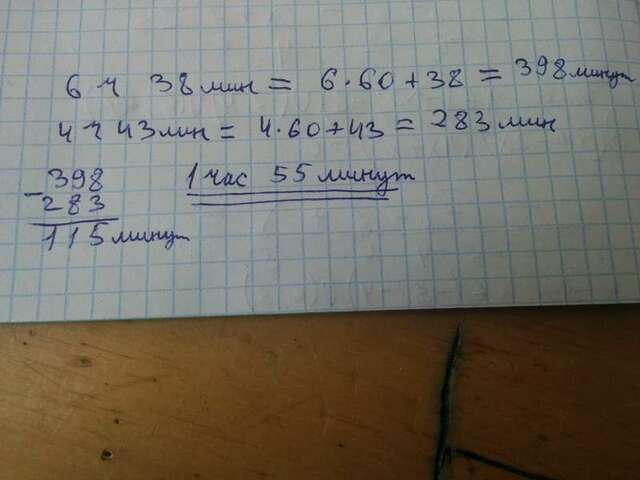 6 ч 38 мин = 6·60+38 = 398 минут
4 ч 43 мин = 4·60+43 = 283 мин
-398
283
115 минут
1 час 55 минут